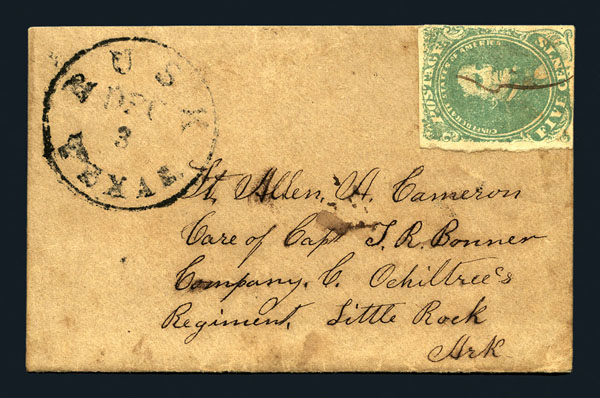 RUSK
DEC
3
TEXAS
POSTAGE
CONFEDERATE STATES OF AMERICA
FIVE CENTS
Lt. Allen, A. Cameron
Care of Capt T. R. Bonner
Company. C. Ochiltree's
Regiment, Little Rock
Ark